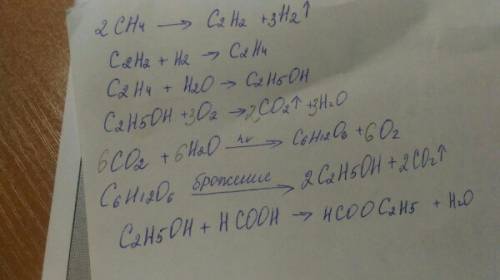 2CH4 → C2H2 + 3H2↑
C2H2 + H2 → C2H4
C2H4 + H2O → C2H5OH
C2H5OH + 3O2 → 2CO2↑ + 3H2O
6CO2 + 6H2O hν→ C6H12O6 + 6O2
C6H12O6 брожение→ 2C2H5OH + 2CO2↑
C2H5OH + HCOOH → HCOOC2H5 + H2O